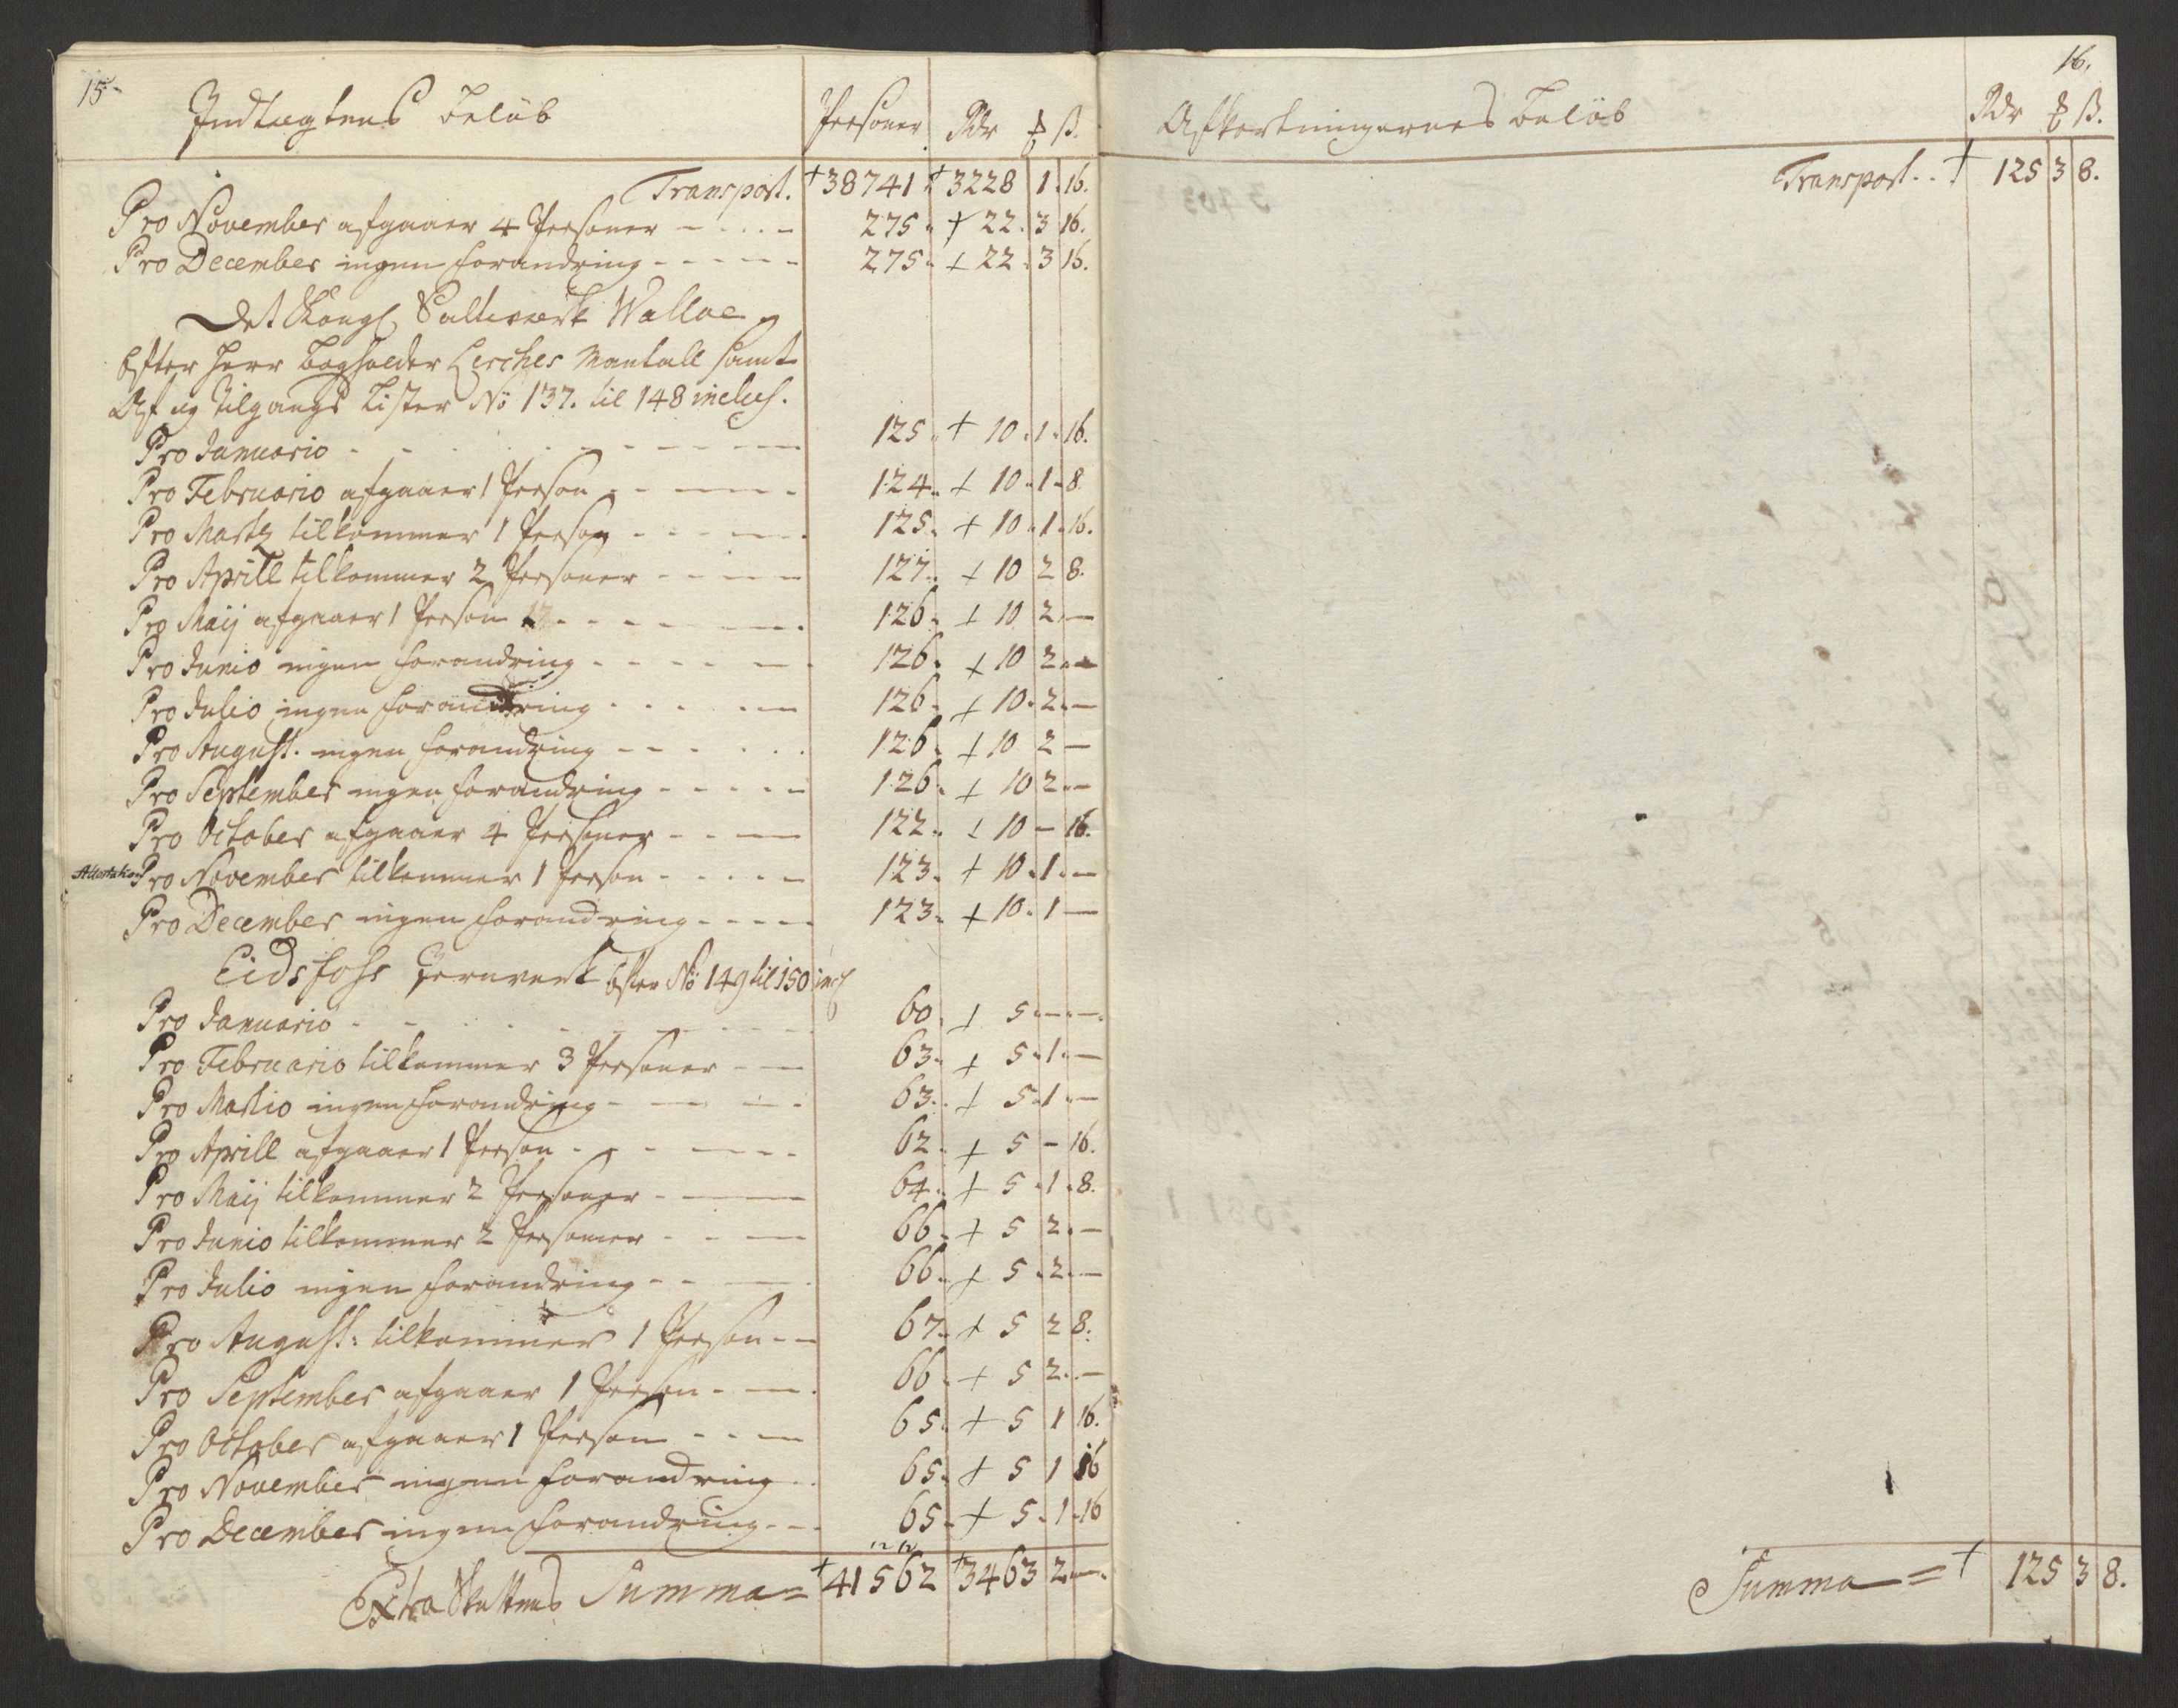 15.
Indtægtens Beløb Personer Rdr ₰ ß.
Transport. +38741. +3228 1. 16.
Pro November afgaaer 4 Personer - - - - 275. + 22. 3 16.
Pro December ingen forandring - - - - - 275. + 22. 3 16.
Det Kongl Saltverk Walløe
Efter Herr Bogholder Lerches Mantall samt
Af og Tilgangs Lister No 137. til 148 inclus.
Pro Januario - - - - - 125. + 10. 1. 16.
Pro Februario afgaaer 1 Person - - - - 124. + 10. 1. 8
Pro Martz tilkommer 1 Person - - - - 125. + 10. 1. 16.
Pro Aprill tilkommer 2 Personer - - - - 127. + 10 2 8.
Pro Maij afgaaer 1 Person - - - - 126. + 10 2. —
Pro Junio ingen forandring - - - - 126. + 10 2. —
Pro Julio ingen forandring - - - - 126. + 10. 2. —
Pro August. ingen forandring - - - - 126. + 10 2 —
Pro September ingen forandring - - - - 126. + 10 2. —
Pro October afgaaer 4 Personer - - - 122. + 10 — 16.
Pro November tilkommer 1 Person - - - - 123. + 10. 1. —
Pro December ingen forandring - - - - 123. + 10. 1 —
Eidsfoss Jernverk Efter No 149 til 150 incl
Pro Januario - - - - - 60. + 5. — —.
Pro Februario tilkommer 3 Personer - - 63. + 5. 1. —
Pro Martio ingen forandring - - - - 63. + 5. 1. —
Pro Aprill afgaaer 1 Person - - - - 62. + 5 — 16.
Pro Maij tilkommer 2 Personer - - - 64. + 5. 1. 8.
Pro Junio tilkommer 2 Personer - - - 66. + 5 2. —
Pro Julio ingen forandring - - - - 66. + 5. 2. —
Pro August: tilkommer 1 Person - - 67. + 5 2 8.
Pro September afgaaer 1 Person - - - 66. + 5 2. —
Pro October afgaaer 1 Person - - - 65. + 5 1 16.
Pro November ingen forandring - - 65. + 5 1 16
Pro December ingen forandring - - - 65. + 5. 1. 16
Extra Skattens Summa = +41562 +3463 2 —.
16.
Afkortningernes Beløb Rdr ₰ ß.
Transport. . + 125 3 8.
Summa = + 125 3 8.